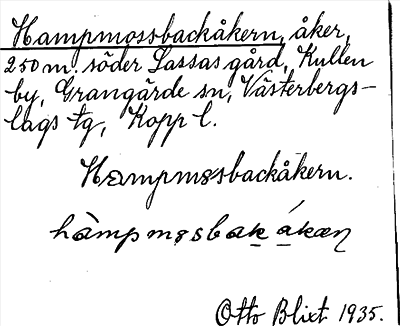 Hampmossbackåkern, åker,
250 m. söder Lassas gård, Kullen
by, Grangärde sn, Västerbergs-
lags tg, Kopp l.
Hampmossbackåkern.
hàmpmosbakákæn
Otto Blixt 1935.